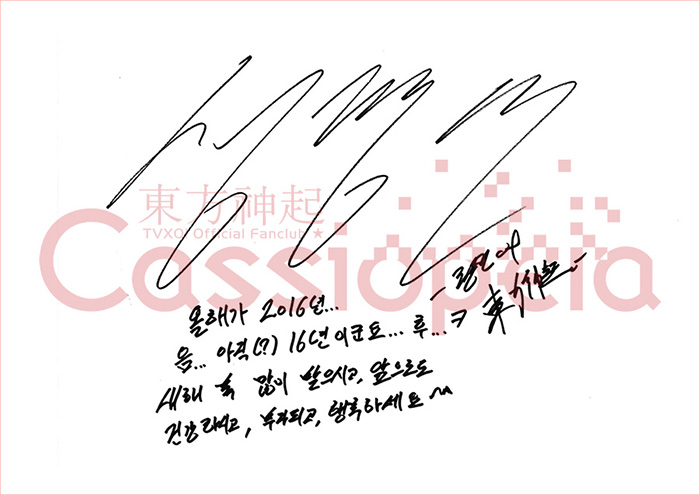 東方神起
TVXQ! Official Fanclub ★
Cassiopeia
올해가 2016년...
음... 아직(?) 16년이군요... 후...ㅋ
새해 복 많이 받으시고, 앞으로도
건강하시고, 부자되고, 행복하세요~